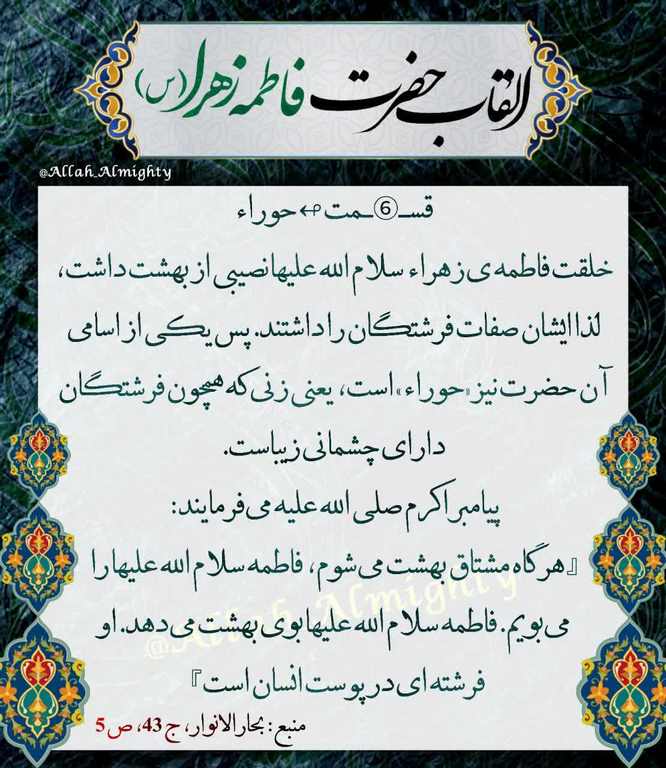 القاب حضرت فاطمه زهرا (س)
@Allah_Almighty
قسـ⑥ـمت ↫ حوراء
خلقت فاطمه ی زهراء سلام الله علیها نصیبی از بهشت داشت،
لذا ایشان صفات فرشتگان را داشتند. پس یکی از اسامی
آن حضرت نیز «حوراء» است، یعنی زنی که همچون فرشتگان
دارای چشمانی زیباست.
پیامبر اکرم صلی الله علیه می فرمایند:
『هرگاه مشتاق بهشت می شوم، فاطمه سلام الله علیها را
می بویم. فاطمه سلام الله علیها بوی بهشت می دهد. او
فرشته ای در پوست انسان است』
@Allah_Almighty
منبع: بحارالانوار، ج 43، ص 5